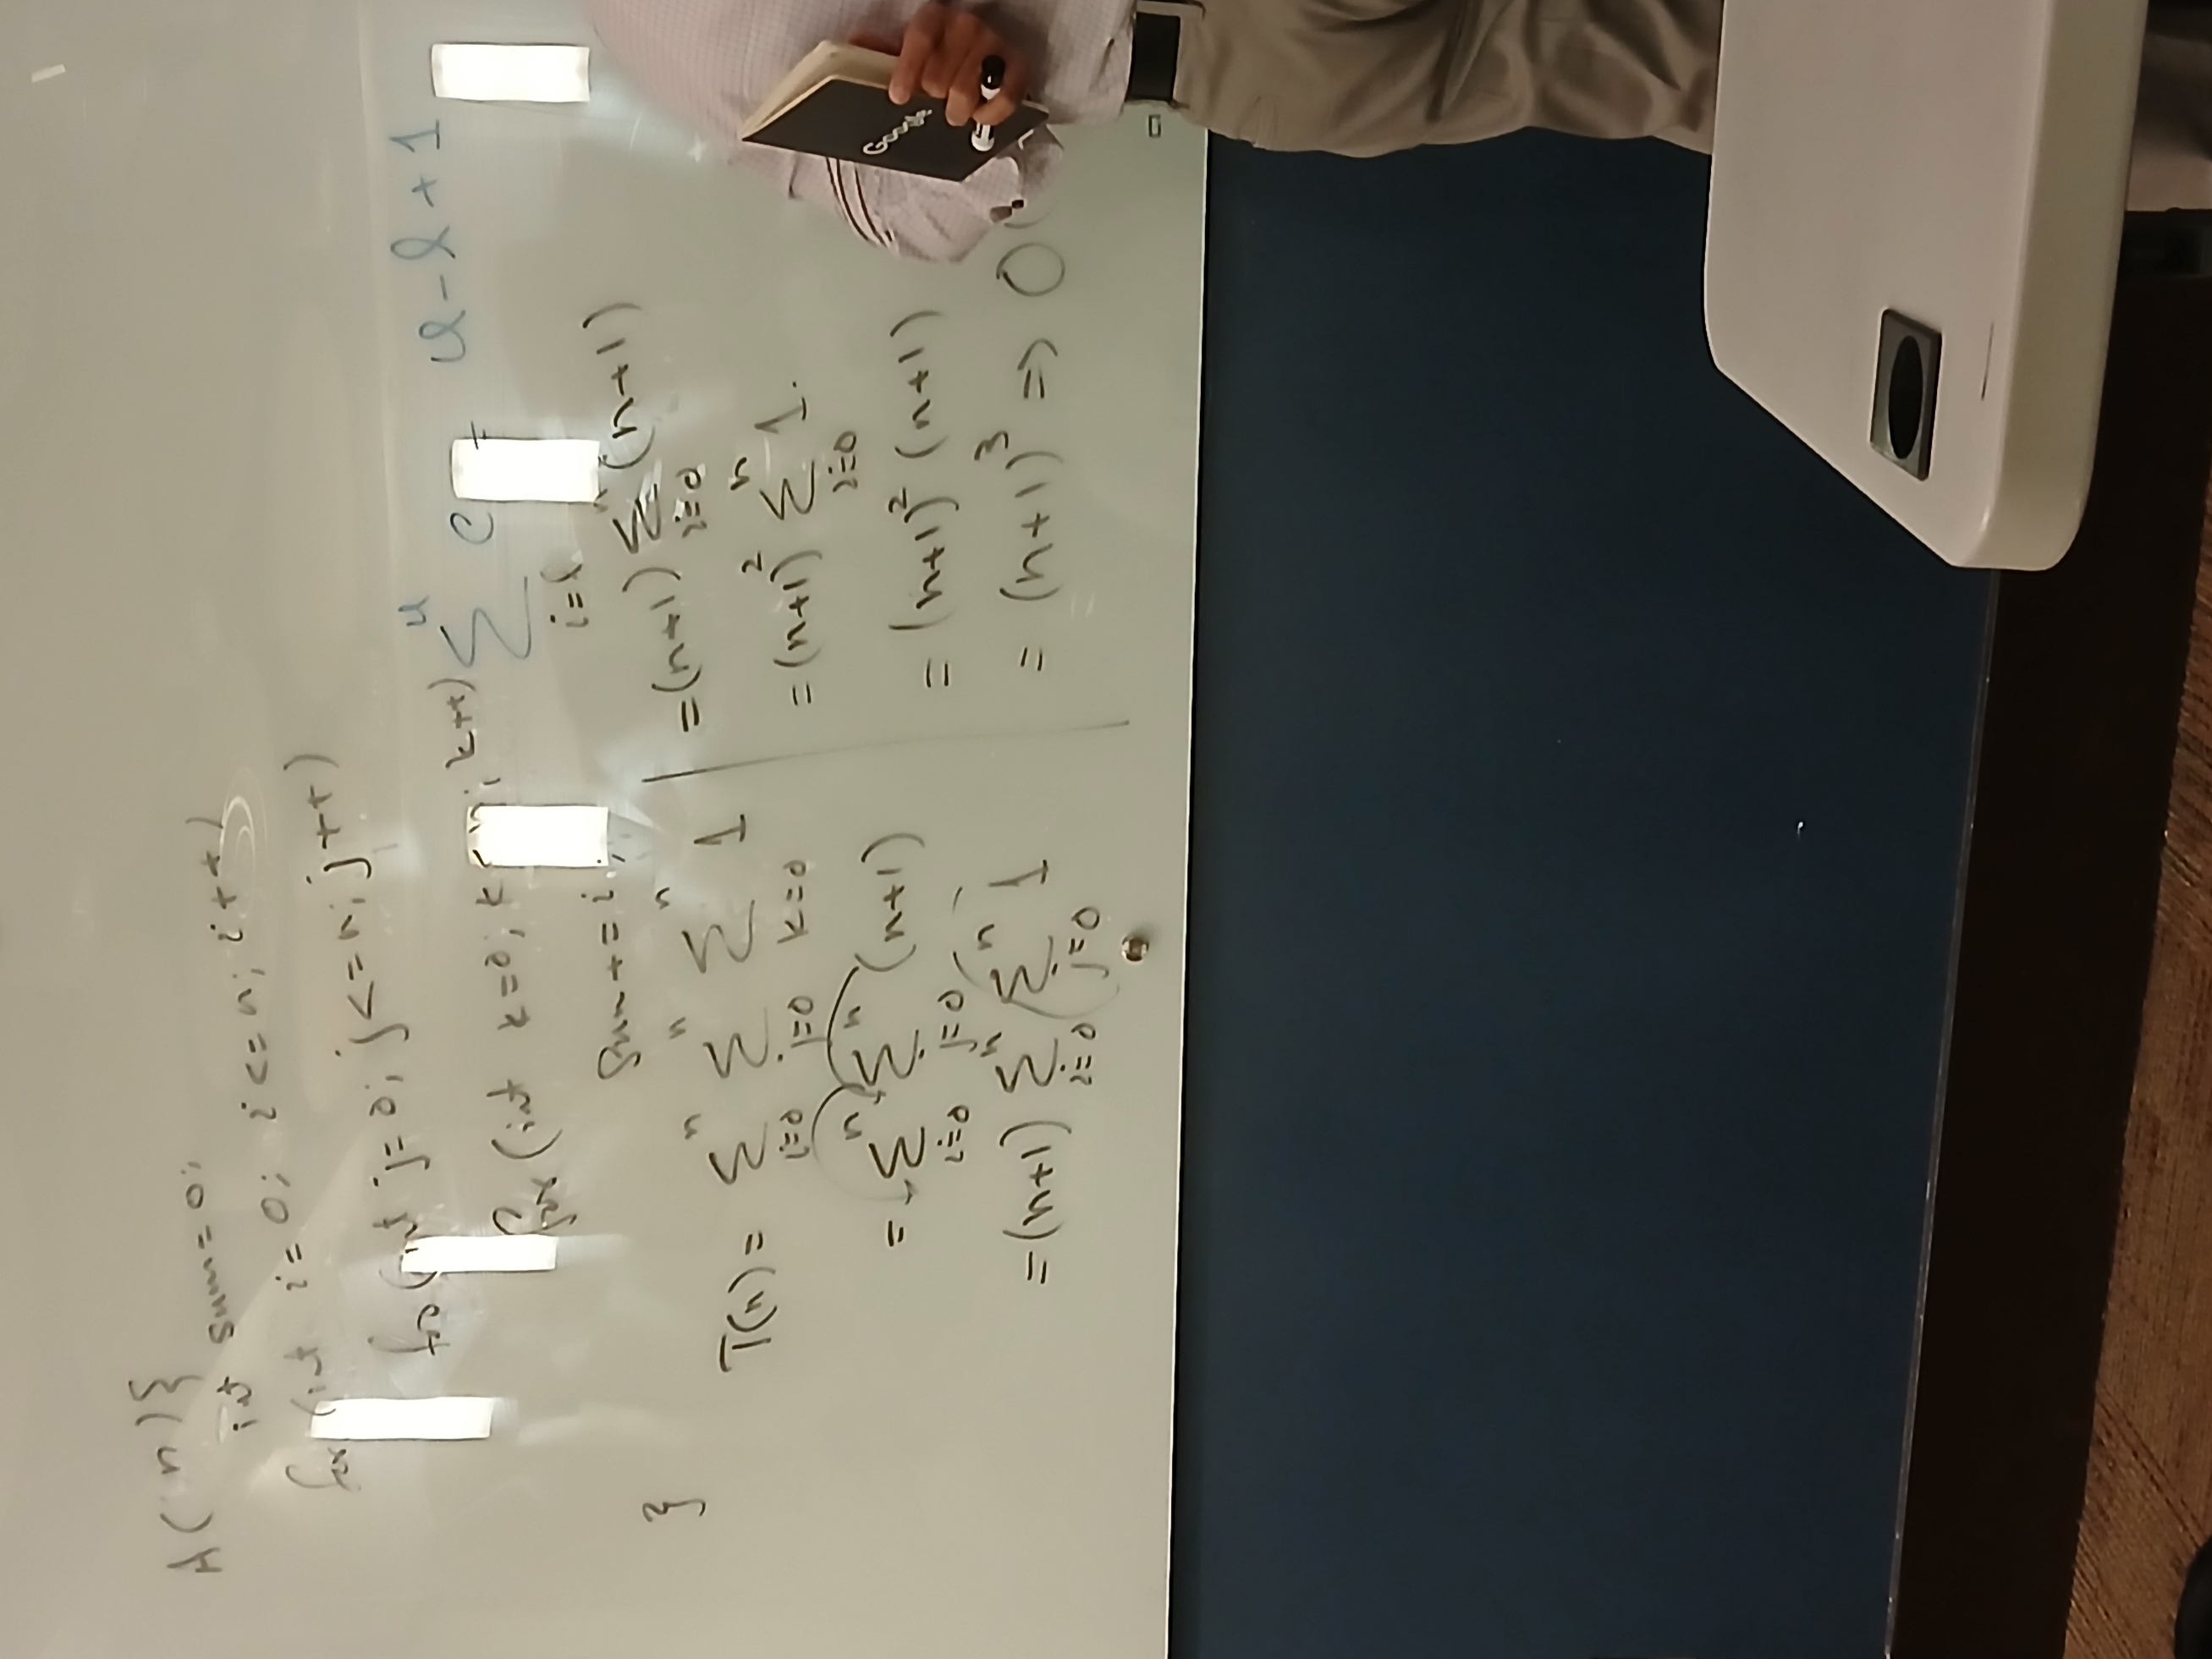 A( n){
int sum=0;
for (int i=0; i<=n; i++)
for (int j=0; j<=n; j++)
for (int k=0; k<=n; k++)
sum+=i;
}
u
∑ c = u-l+1
i=l
T(n) = ∑_{i=0}^{n} ∑_{j=0}^{n} ∑_{k=0}^{n} 1
= ∑_{i=0}^{n} ∑_{j=0}^{n} (n+1)
=(n+1) ∑_{i=0}^{n} ∑_{j=0}^{n} 1
=(n+1) ∑_{i=0}^{n} (n+1)
=(n+1)² ∑_{i=0}^{n} 1.
= (n+1)² (n+1)
= (n+1)³ => O(
Google